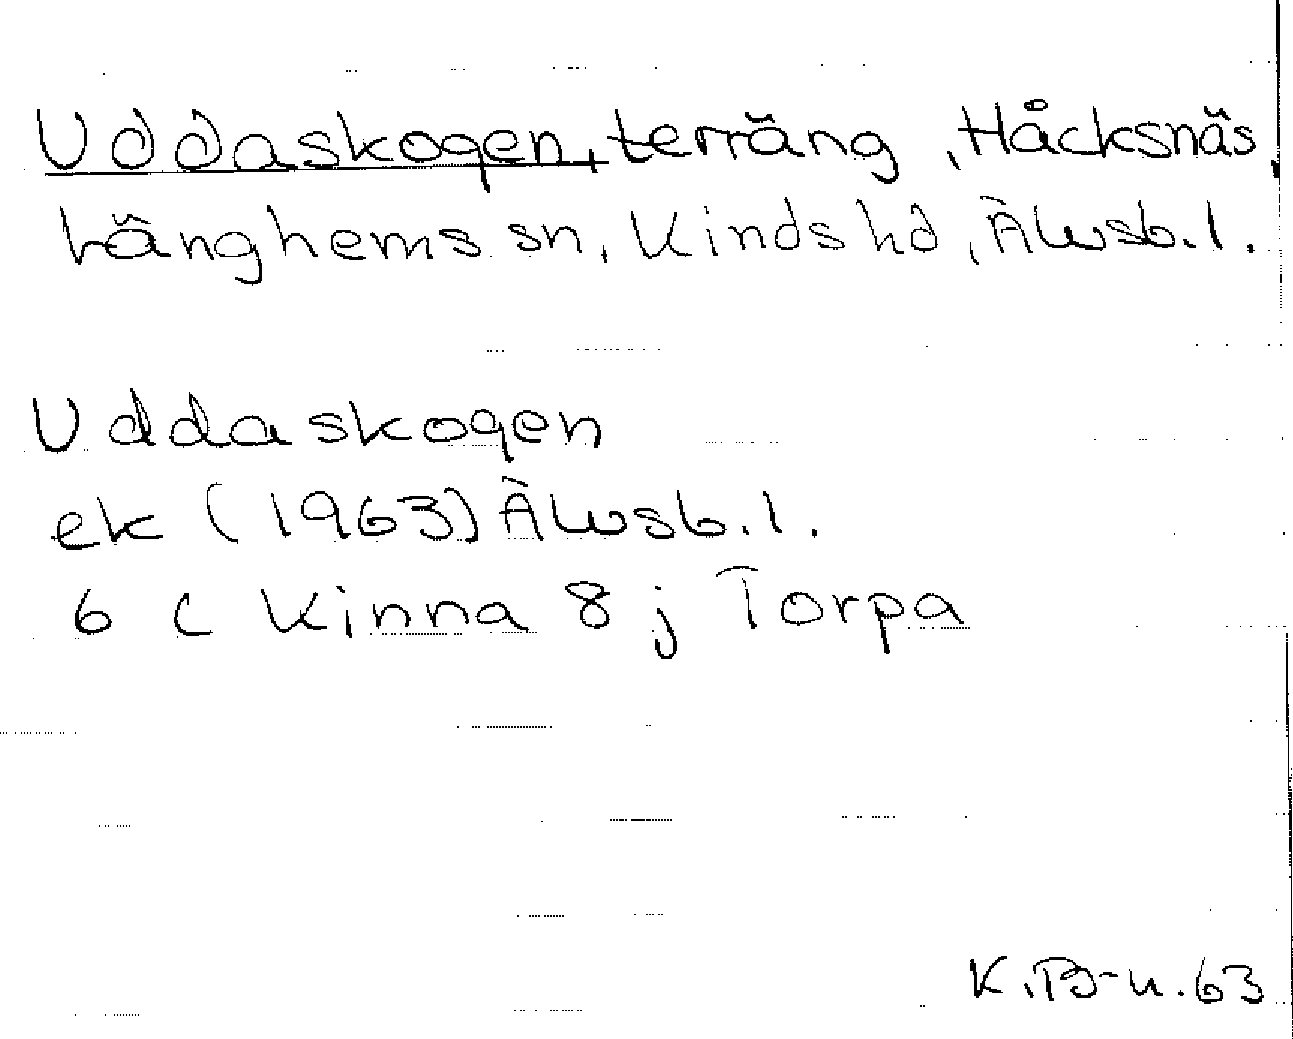 Uddaskogen, terräng, Håcksnäs,
Länghems sn, Kinds hd, Älvsb.l.
Uddaskogen
ek (1963) Älvsb.l.
6 C Kinna 8 j Torpa
K.B-n.63